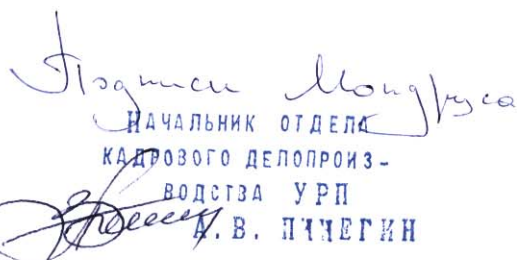 Подписи
НАЧАЛЬНИК ОТДЕЛА
КАДРОВОГО ДЕЛОПРОИЗ-
ВОДСТВА УРП
А. В. ПИЧЕГИН